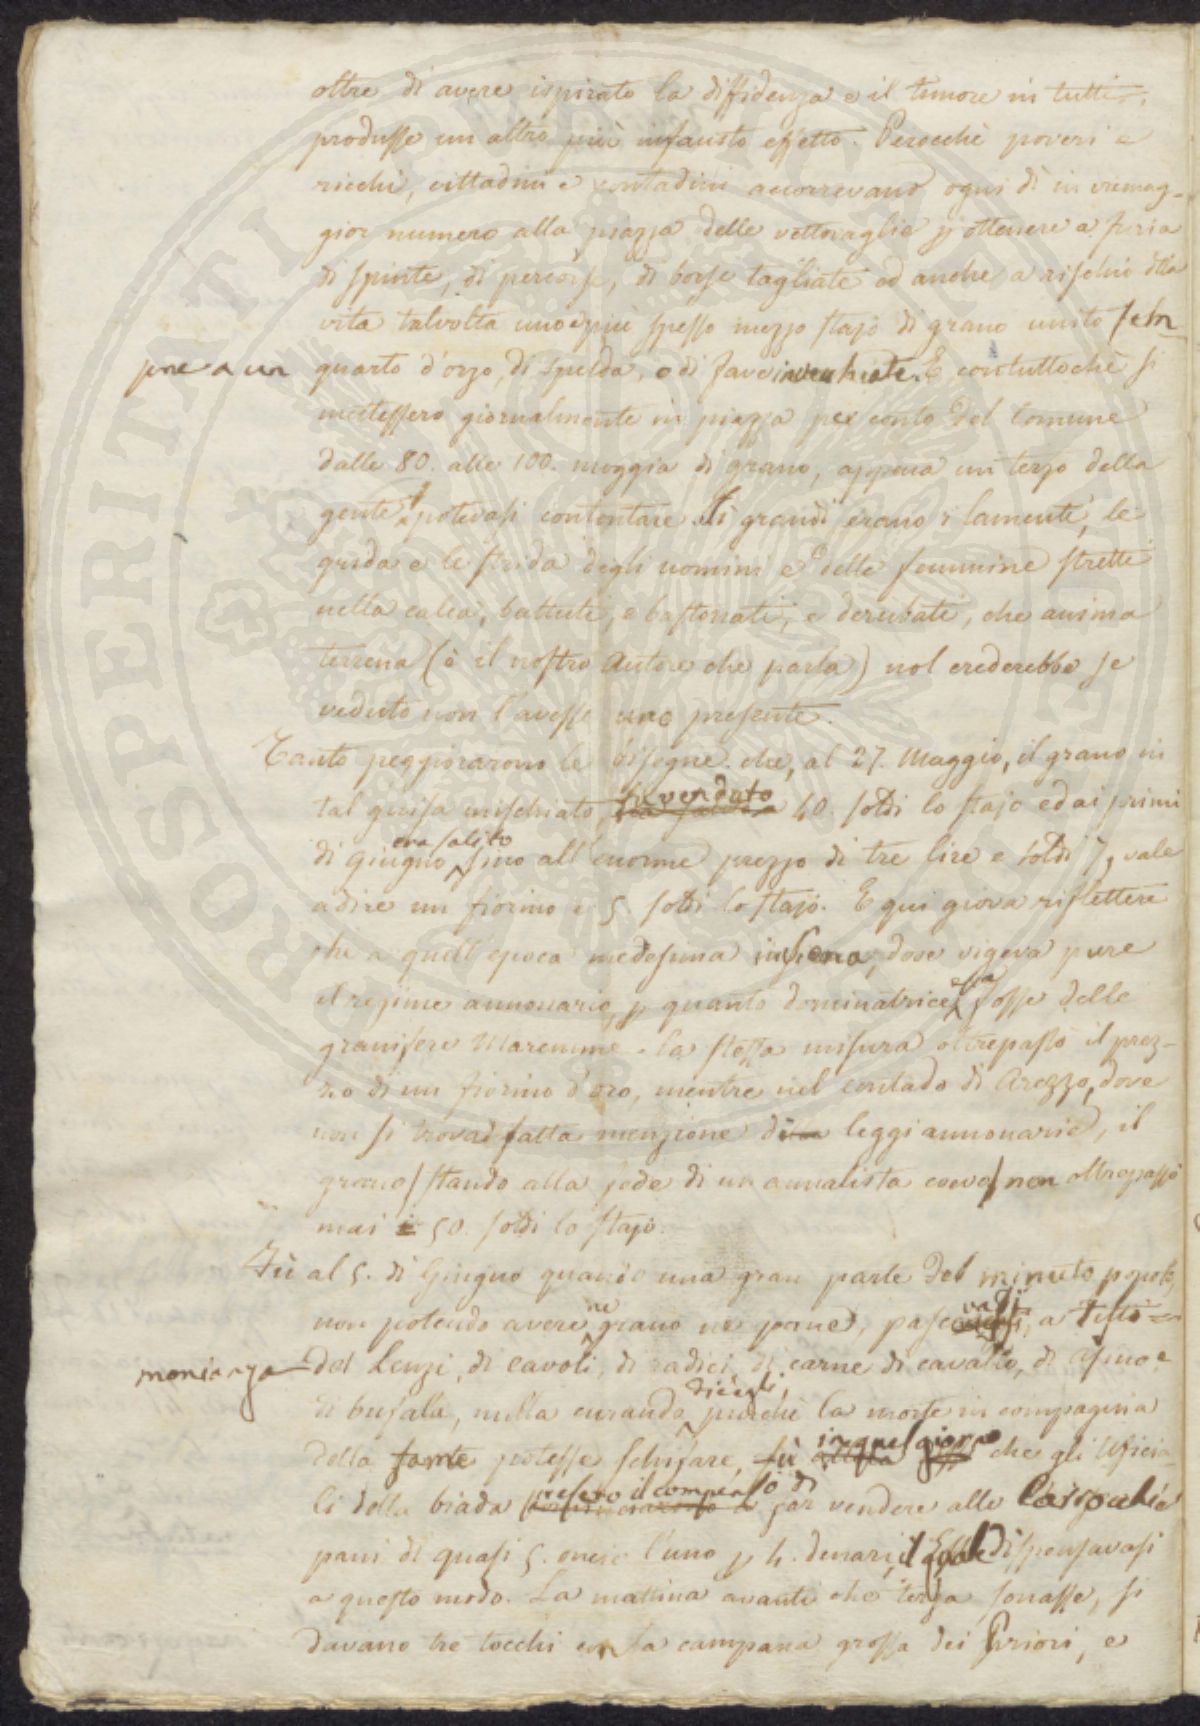 oltre di avere ispirato la diffidenza e il timore in tutti,
produsse un altro più infausto effetto. Perocchè poveri e
ricchi, cittadini e contadini accorrevano ogni dì in viemag-
gior numero alla piazza delle vettovaglie p ottenere a furia
di spinte, di percosse, di borse tagliate ed anche a rischio della
vita talvolta uno e più spesso mezzo stajo di grano misto sem
pre a un quarto d'orzo, di spelda, o di fave invecchiate. E contuttochè si
mettessero giornalmente in piazza per conto del Comune
dalle 80. alle 100. moggia di grano, appena un terzo della
gente potevasi contentare. Sì grandi erano i lamenti, le
grida e le strida degli uomini e delle femmine stretti
nella calca, battuti, e bastonati, e derubati, che anima
terrena (è il nostro Autore che parla) nol crederebbe se
veduto non l'avesse uno presente.
Tanto peggiorarono le bisogne che, al 27. Maggio, il grano in
tal guisa mischiato, fu venduto 40. soldi lo stajo ed ai primi
di Giugno era salito sino all'enorme prezzo di tre lire e soldi 7, vale
a dire un fiorino e 5. soldi lo stajo. E qui giova riflettere
che a quell'epoca medesima in Siena, dove vigeva pure
il regime annonario, p quanto dominatrice essa fosse delle
granifere Maremme la stessa misura oltrepassò il prez-
zo di un fiorino d'oro, mentre nel contado di Arezzo, dove
non si trova fatta menzione di leggi annonarie, il
grano / stando alla fede di un annalista coevo / non oltrepassò
mai i 50. soldi lo stajo.
Fù al 5. di Giugno quando una gran parte del minuto popolo,
non potendo avere nè grano nè pane, pascevasi, a testi=
monianza del Lenzi, di cavoli, di radici, di carne di cavallo, di asino e
di bufala, nulla curando, dic'egli, purchè la morte in compagnia
della fame potesse schifare, fù in quel giorno che gli Uficia-
li della biada presero il compenso di far vendere alle Casipole
pani di quasi 5. oncie l'uno p 4. denari, il quale dispensavasi
a questo modo. La mattina avanti che terza sonasse, si
davano tre tocchi con la campana grossa dei Priori, e